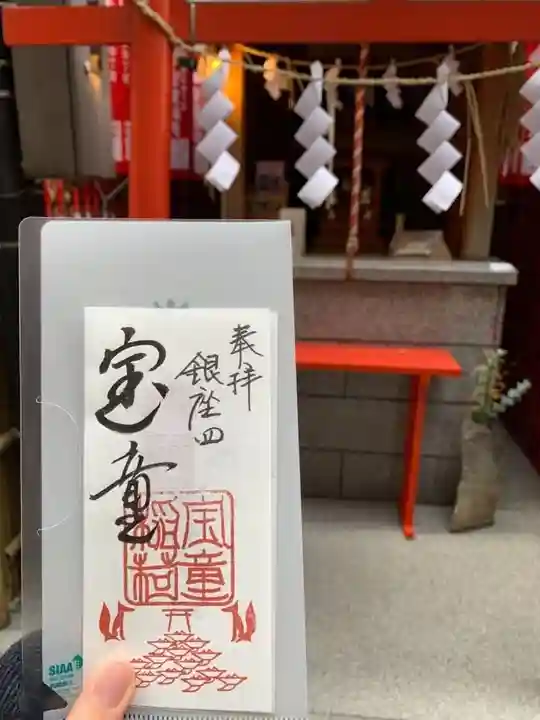 奉拝
銀座四
宝童
宝童
稲荷
SIAA